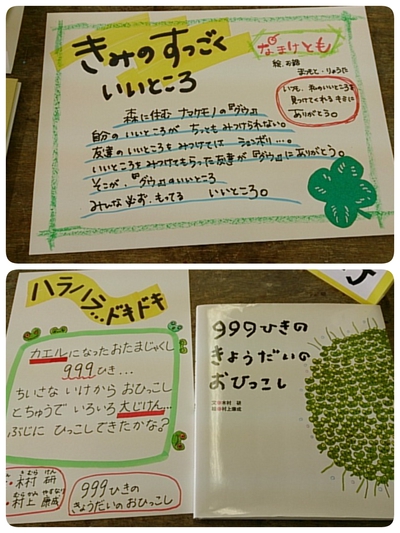 きみのすっごく
いいところ
なまけとも
絵・お話
まつもと・りょうた
いつも、私のいいところを
見つけてくれるキミに
ありがとう。
森に住む ナマケモノの『グゥ』
自分の いいところが ちっとも みつけられない。
友達の いいところを みつけては ションボリ…。
いいところを みつけてもらった友達が 『グゥ』に ありがとう。
そこが、『グゥ』のいいところ
みんな 必ず、もってる いいところ。
ハラハラ…ドキドキ
カエルになったおたまじゃくし
999ひき…
ちいさな いけから おひっこし
とちゅうで いろいろ 大じけん…
ぶじに ひっこしできたかな?
きむら けん
木村 研
むらかみ やすなり
村上 康成
999ひきの
きょうだいの おひっこし
999ひきの
きょうだいの
おひっこし
文●木村 研
絵●村上康成